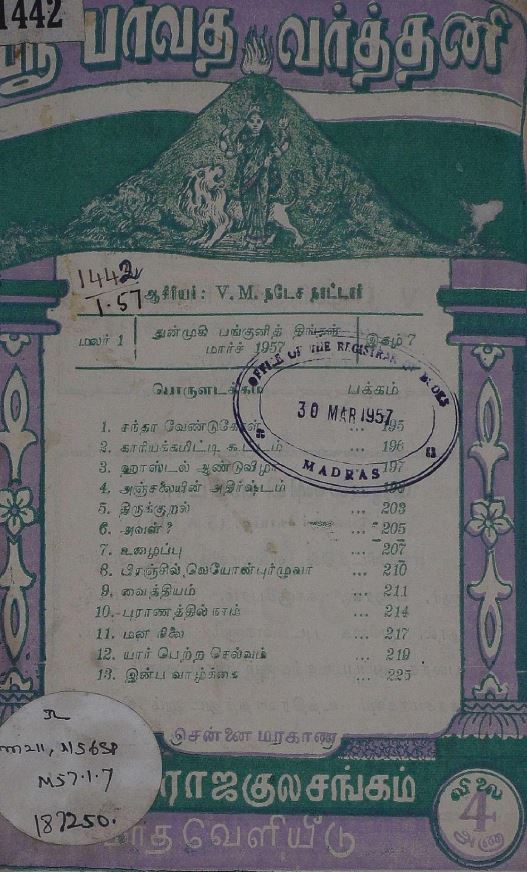 1442
ஸ்ரீ பர்வத வர்த்தனி
1442
1.57
ஆசிரியர்: V. M. நடேச நாட்டார்
மலர் 1 துன்முகி பங்குனித் திங்கள் இதழ் 7
மார்ச் 1957
OFFICE OF THE REGISTRAR OF BOOKS
30 MAR 1957
MADRAS
பொருளடக்கம் பக்கம்
1. சந்தா வேண்டுகோள் ... 195
2. காரியக்கமிட்டி கூட்டம் ... 196
3. ஹாஸ்டல் ஆண்டுவிழா ... 197
4. அஞ்சலையின் அதிர்ஷ்டம் ...
5. திருக்குறள் ... 203
6. அவள் ? ... 205
7. உழைப்பு ... 207
8. பிரஞ்சில் வெயோன்புர்முவா ... 210
9. வைத்தியம் ... 211
10. புராணத்தில் நாம் ... 214
11. மன நிலை ... 217
12. யார் பெற்ற செல்வம் ... 219
13. இன்ப வாழ்க்கை ... 225
சென்னை மாகாண
ராஜகுலசங்கம்
மாத வெளியீடு
விலை
4
அணா
M57.1.7
187250.